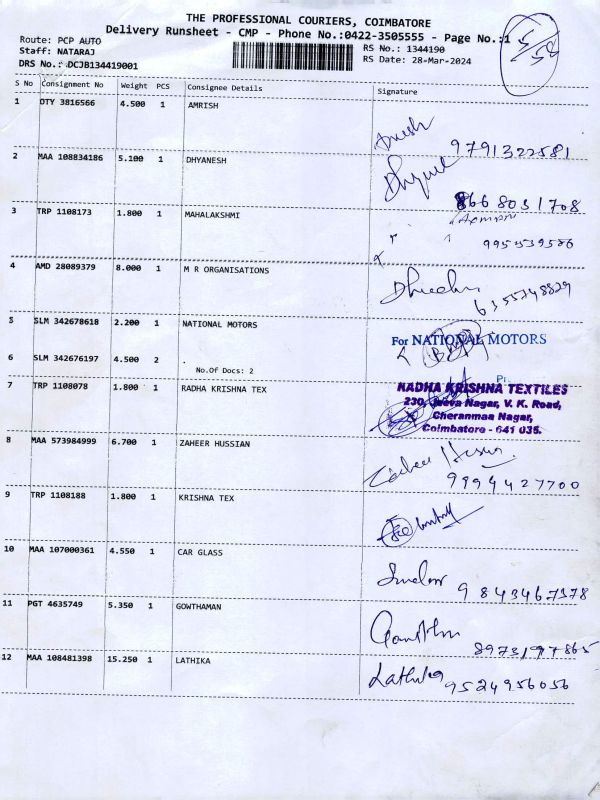 THE PROFESSIONAL COURIERS, COIMBATORE
Delivery Runsheet - CMP - Phone No.:0422-3505555 - Page No.:1
Route: PCP AUTO
Staff: NATARAJ
DRS No.: DCJB134419001
RS No.: 1344190
RS Date: 28-Mar-2024
S No Consignment No Weight PCS Consignee Details Signature
1 OTY 3816566 4.500 1 AMRISH
9791322581
2 MAA 108834186 5.100 1 DHYANESH
8668031708
3 TRP 1108173 1.800 1 MAHALAKSHMI
995539586
4 AMD 28089379 8.000 1 M R ORGANISATIONS
6355248829
5 SLM 342678618 2.200 1 NATIONAL MOTORS
For NATIONAL MOTORS
6 SLM 342676197 4.500 2
No.Of Docs: 2
7 TRP 1108078 1.800 1 RADHA KRISHNA TEX
RADHA KRISHNA TEXTILES
230, Jeeva Nagar, V. K. Road,
Cheranmaa Nagar,
Coimbatore - 641 035.
8 MAA 573984999 6.700 1 ZAHEER HUSSIAN
9994427700
9 TRP 1108188 1.800 1 KRISHNA TEX
10 MAA 107000361 4.550 1 CAR GLASS
9843467378
11 PGT 4635749 5.350 1 GOWTHAMAN
8973197865
12 MAA 108481398 15.250 1 LATHIKA
Lathika 9524956056